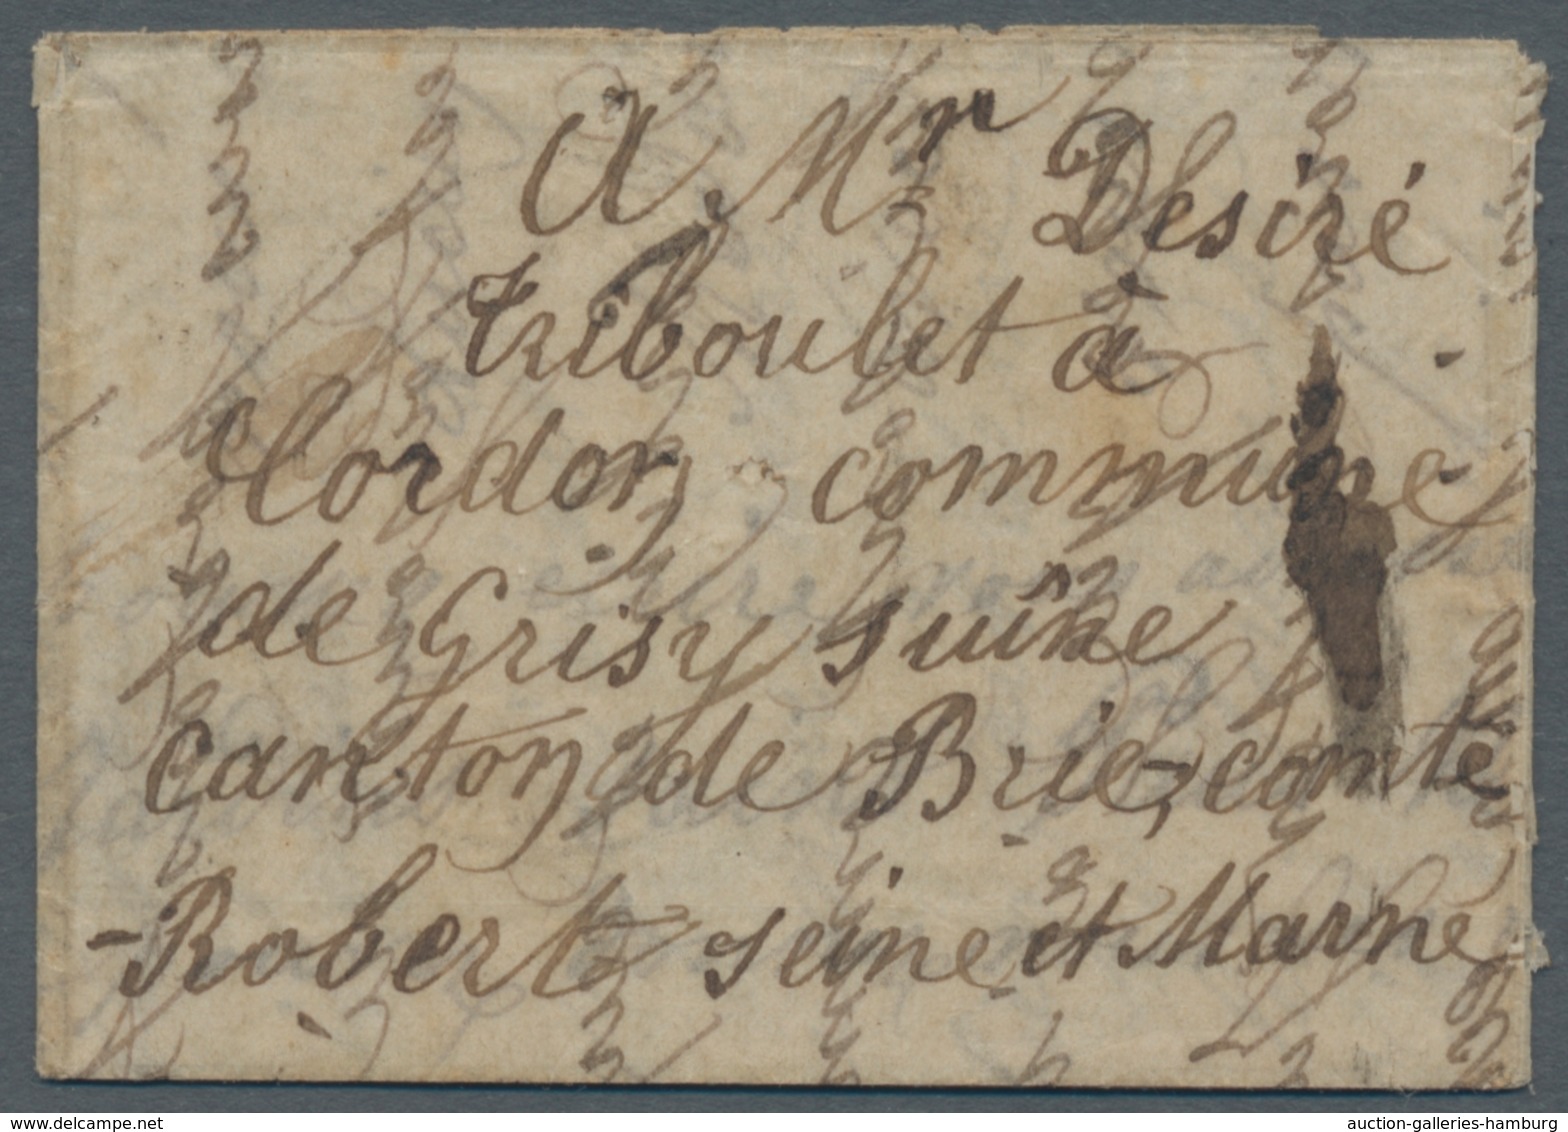 A Mr Desiré
triboulet à
Cordon commune
de Grisy suine
canton de Brie, comte
-Robert seine et Marne
delcampe.net
auction-galleries-hamburg